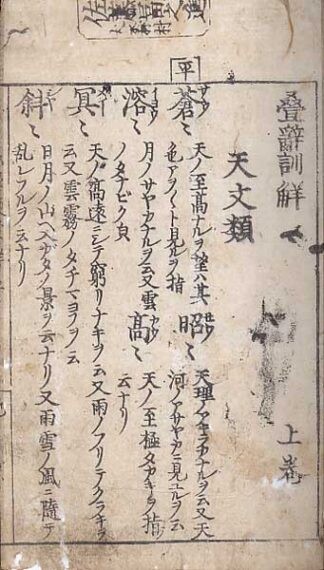 叠辭訓解　上巻
天文類
平
蒼〻
天ノ至高ナルヲ望ハ其
色アヲ〱ト見ルヲ指
昭〻
天理ノアキラカナルヲ云又天
河ノアサヤカニ見ユルヲ云
溶〻
月ノサヤカナルヲ云又雲
ノタナビク皃
高〻
天ノ至極タカキヲ指
云ナリ
冥〻
天ノ高遠ニシテ窮リナキヲ云又雨ノフリテクラキヲ
云又雲霧ノタチマヨヲヲ云
斜〻
日月ノ山ヘ入ガタノ景ヲ云ナリ又雨雪ノ風ニ隨テ
乱レフルヲ云ナリ